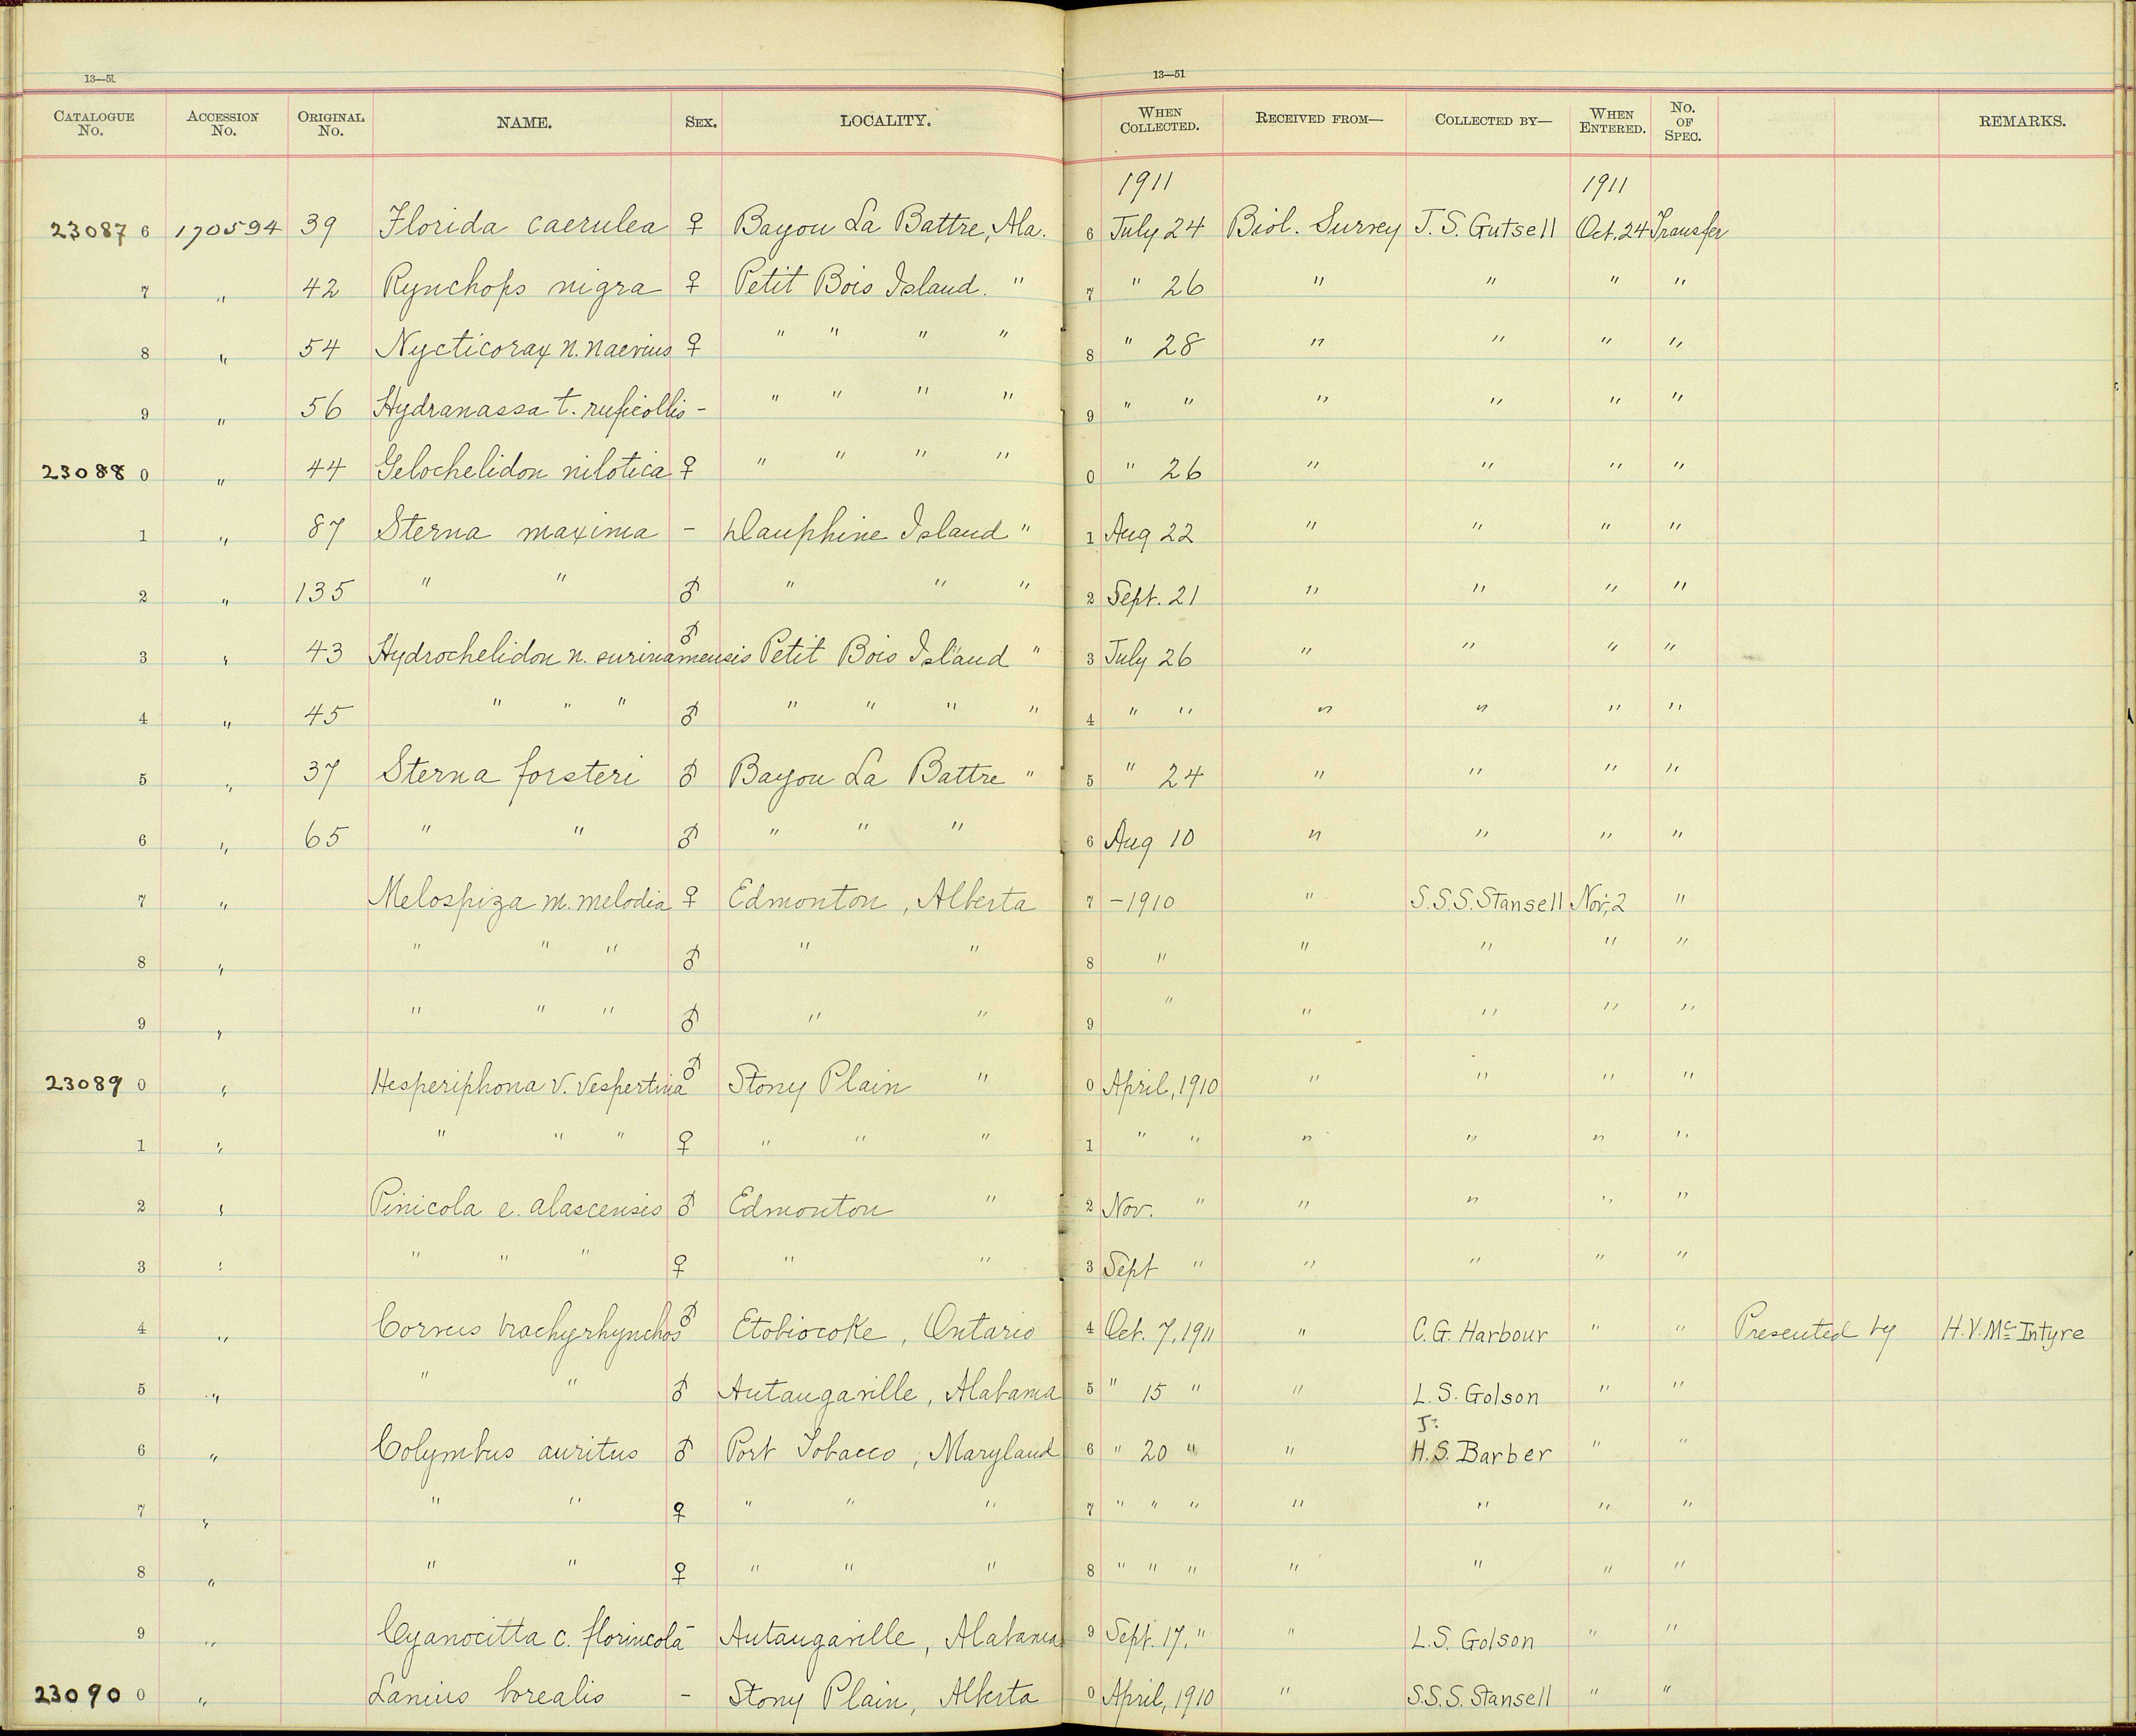 13—51 13—51
CATALOGUE No. ACCESSION No. ORIGINAL No. NAME. SEX. LOCALITY. WHEN COLLECTED. RECEIVED FROM— COLLECTED BY— WHEN ENTERED. No. OF SPEC. REMARKS.
1911 1911
23087 6 170594 39 Florida caerulea ♀ Bayou La Battre, Ala. 6 July 24 Biol. Survey J. S. Gutsell Oct. 24 Transfer
7 " 42 Rynchops nigra ♀ Petit Bois Island. " 7 " 26 " " " "
8 " 54 Nycticorax n. naevius ♀ " " " " 8 " 28 " " " "
9 " 56 Hydranassa t. ruficollis - " " " " 9 " " " " " "
23088 0 " 44 Gelochelidon nilotica ♀ " " " " 0 " 26 " " " "
1 " 87 Sterna maxima - Dauphine Island " 1 Aug 22 " " " "
2 " 135 " " ♂ " " " 2 Sept. 21 " " " "
3 " 43 Hydrochelidon n. surinamensis ♂ Petit Bois Island " 3 July 26 " " " "
4 " 45 " " " ♂ " " " " 4 " " " " " "
5 " 37 Sterna forsteri ♂ Bayou La Battre " 5 " 24 " " " "
6 " 65 " " ♂ " " " 6 Aug 10 " " " "
7 " Melospiza m. melodia ♀ Edmonton, Alberta 7 - 1910 " S.S.S. Stansell Nov, 2 "
8 " " " " ♂ " " 8 " " " " "
9 " " " " ♂ " " 9 " " " " "
23089 0 " Hesperiphona v. vespertina ♂ Stony Plain " 0 April, 1910 " " " "
1 " " " " ♀ " " " 1 " " " " " "
2 " Pinicola e. alascensis ♂ Edmonton " 2 Nov. " " " " "
3 " " " " ♀ " " 3 Sept " " " " "
4 " Corvus brachyrhynchos ♂ Etobiocoke, Ontario 4 Oct. 7, 1911 " C. G. Harbour " " Presented by H. V. Mc Intyre
5 " " " ♂ Autaugaville, Alabama 5 " 15 " " L. S. Golson " "
6 " Colymbus auritus ♂ Port Tobacco, Maryland 6 " 20 " " H. S. Barber " "
7 " " " ♀ " " " 7 " " " " " " "
8 " " " ♀ " " " 8 " " " " " " "
9 " Cyanocitta c. florincola - Autaugaville, Alabama 9 Sept. 17, " " L. S. Golson " "
23090 0 " Lanius borealis - Stony Plain, Alberta 0 April, 1910 " S.S.S. Stansell " "